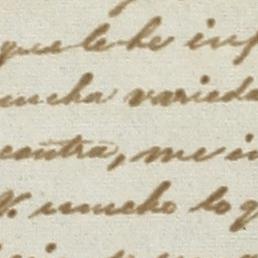 que le he inf
mucha varieda
contra, me in
V. mucho lo q